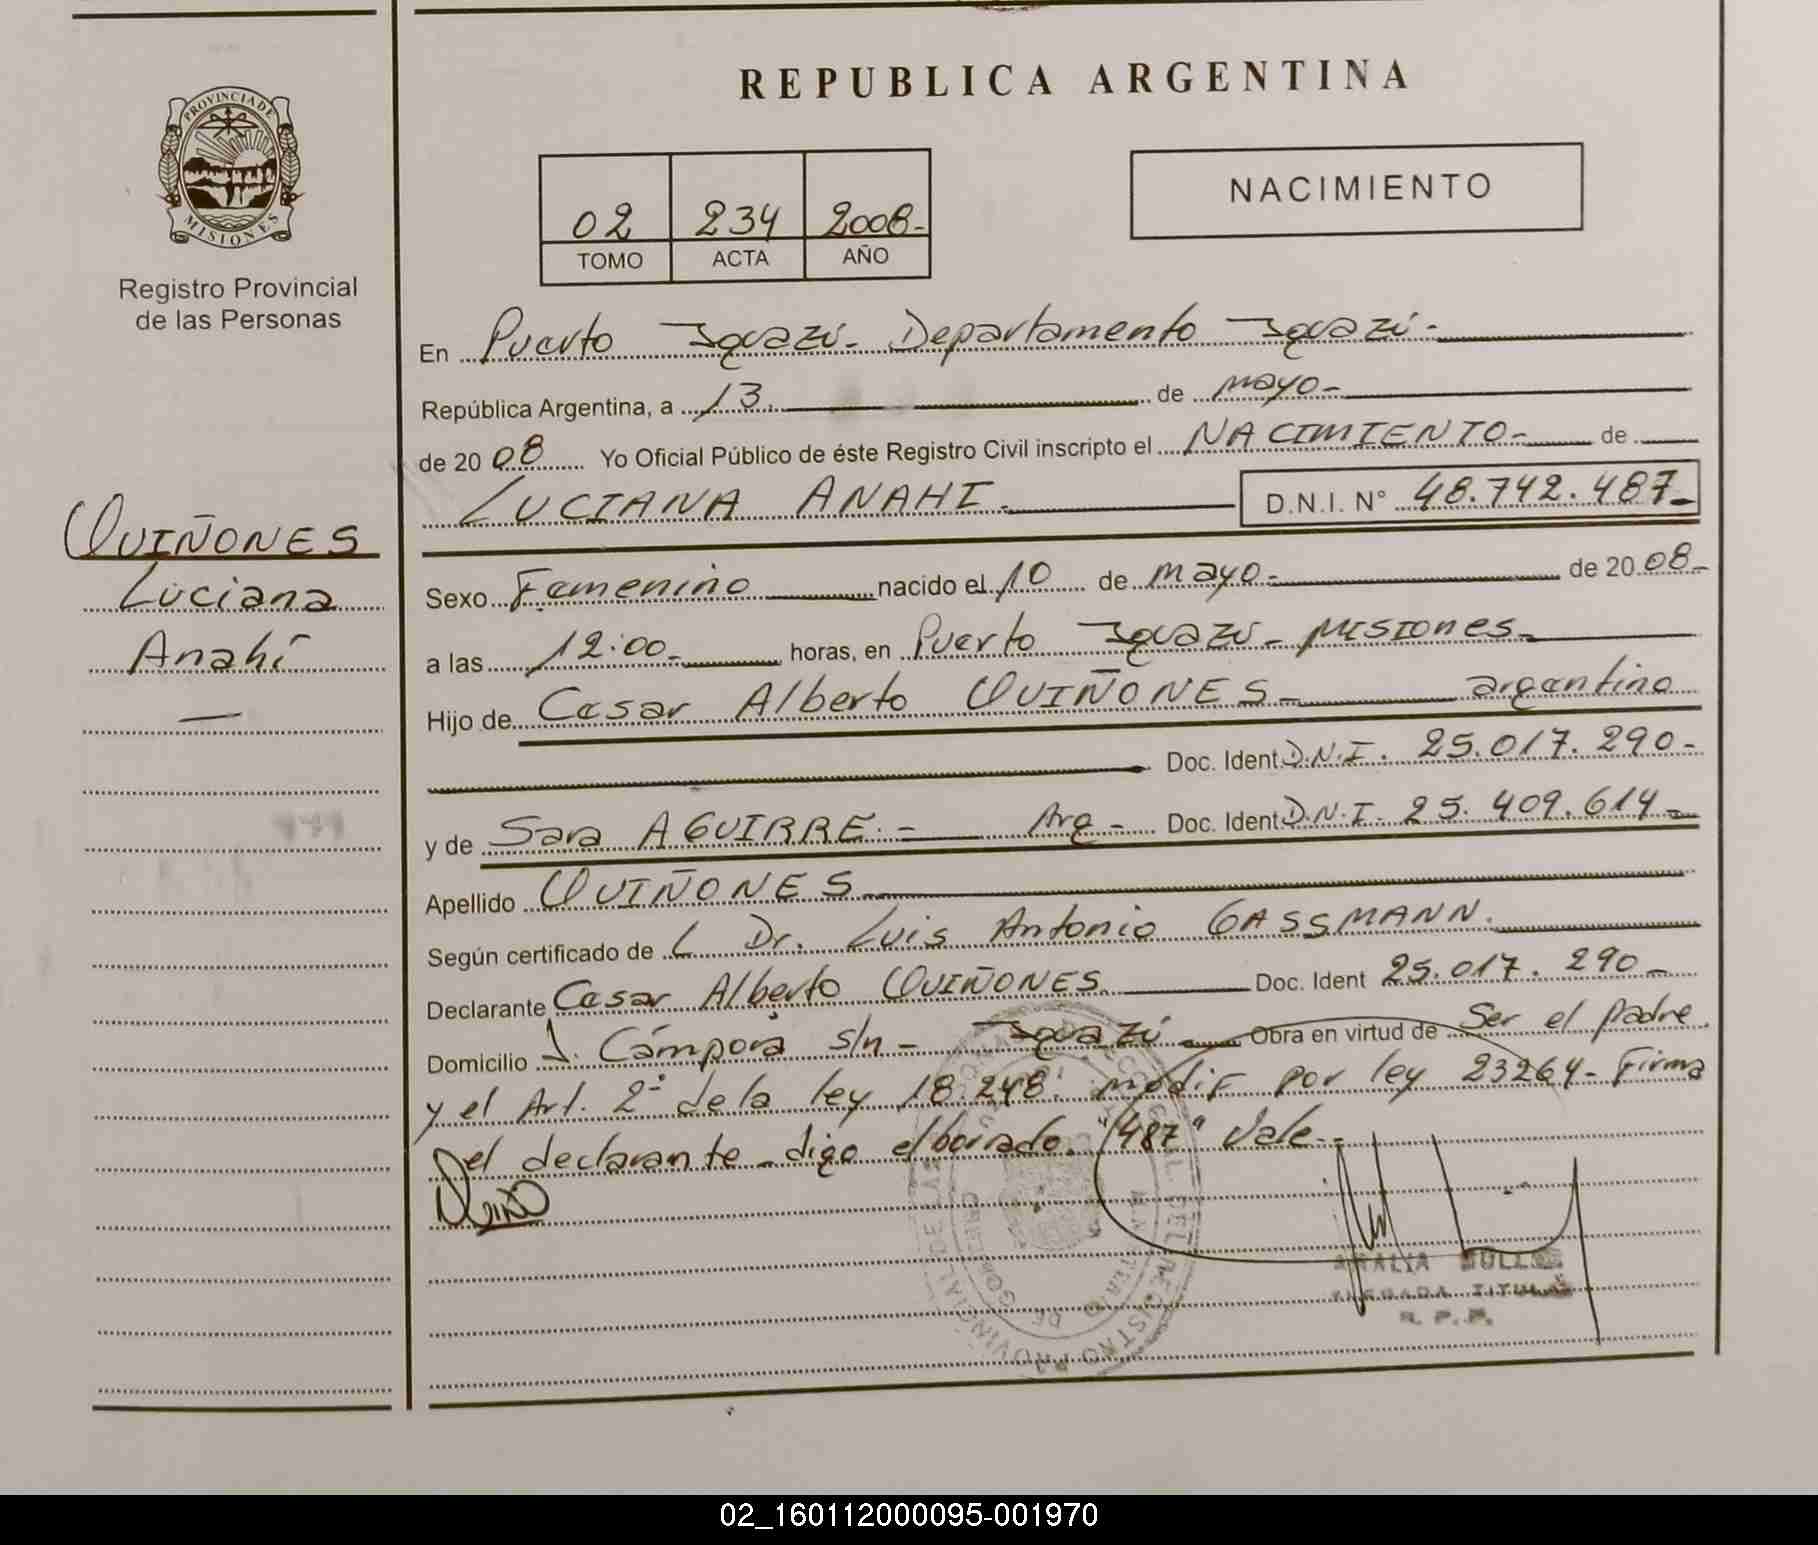 REPUBLICA ARGENTINA
PROVINCIA DE
MISIONES
Registro Provincial
de las Personas
02 234 2008-
TOMO ACTA AÑO
NACIMIENTO
QUIÑONES
Luciana
Anahí
—
En Puerto Iguazú- Departamento Iguazú-
República Argentina, a 13. de mayo-
de 20 08 Yo Oficial Público de éste Registro Civil inscripto el NACIMIENTO- de
LUCIANA ANAHI- D.N.I. N° 48.742.487-
Sexo Femenino nacido el 10 de mayo- de 20 08-
a las 12:00- horas, en Puerto Iguazú- MISIONES-
Hijo de Cesar Alberto QUIÑONES- argentino
Doc. Ident D.N.I. 25.017.290-
y de Sara AGUIRRE.- Arg- Doc. Ident D.N.I. 25.409.614-
Apellido QUIÑONES-
Según certificado de L Dr. Luis Antonio GASSMANN.
Declarante Cesar Alberto QUIÑONES Doc. Ident 25.017.290-
Domicilio J. Cámpora s/n- Iguazú Obra en virtud de Ser el padre.
y el Art. 2° de la ley 18.248. modif por ley 23264- Firma
el declarante- digo el borrado. "487" Vale.-
AMALIA
TITULAR
R.P.P.
02_160112000095-001970